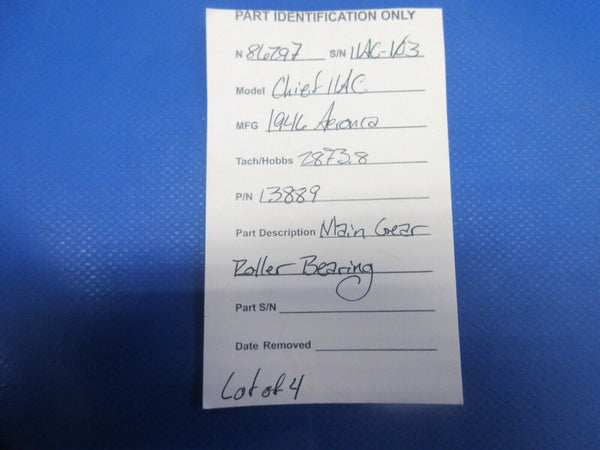 PART IDENTIFICATION ONLY
N 86297 S/N 11AC-163
Model Chief 11AC
MFG 1946 Aeronca
Tach/Hobbs 2873.8
P/N 13889
Part Description Main Gear
Roller Bearing
Part S/N
Date Removed
Lot of 4